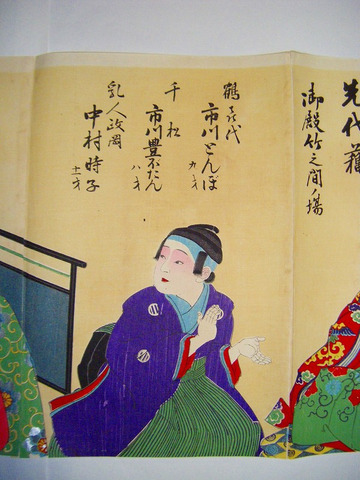 先代萩
御殿竹之間ノ場
鶴喜代
市川とんぼ
九才
千松
市川豊たん
八才
乳人政岡
中村時子
十一才